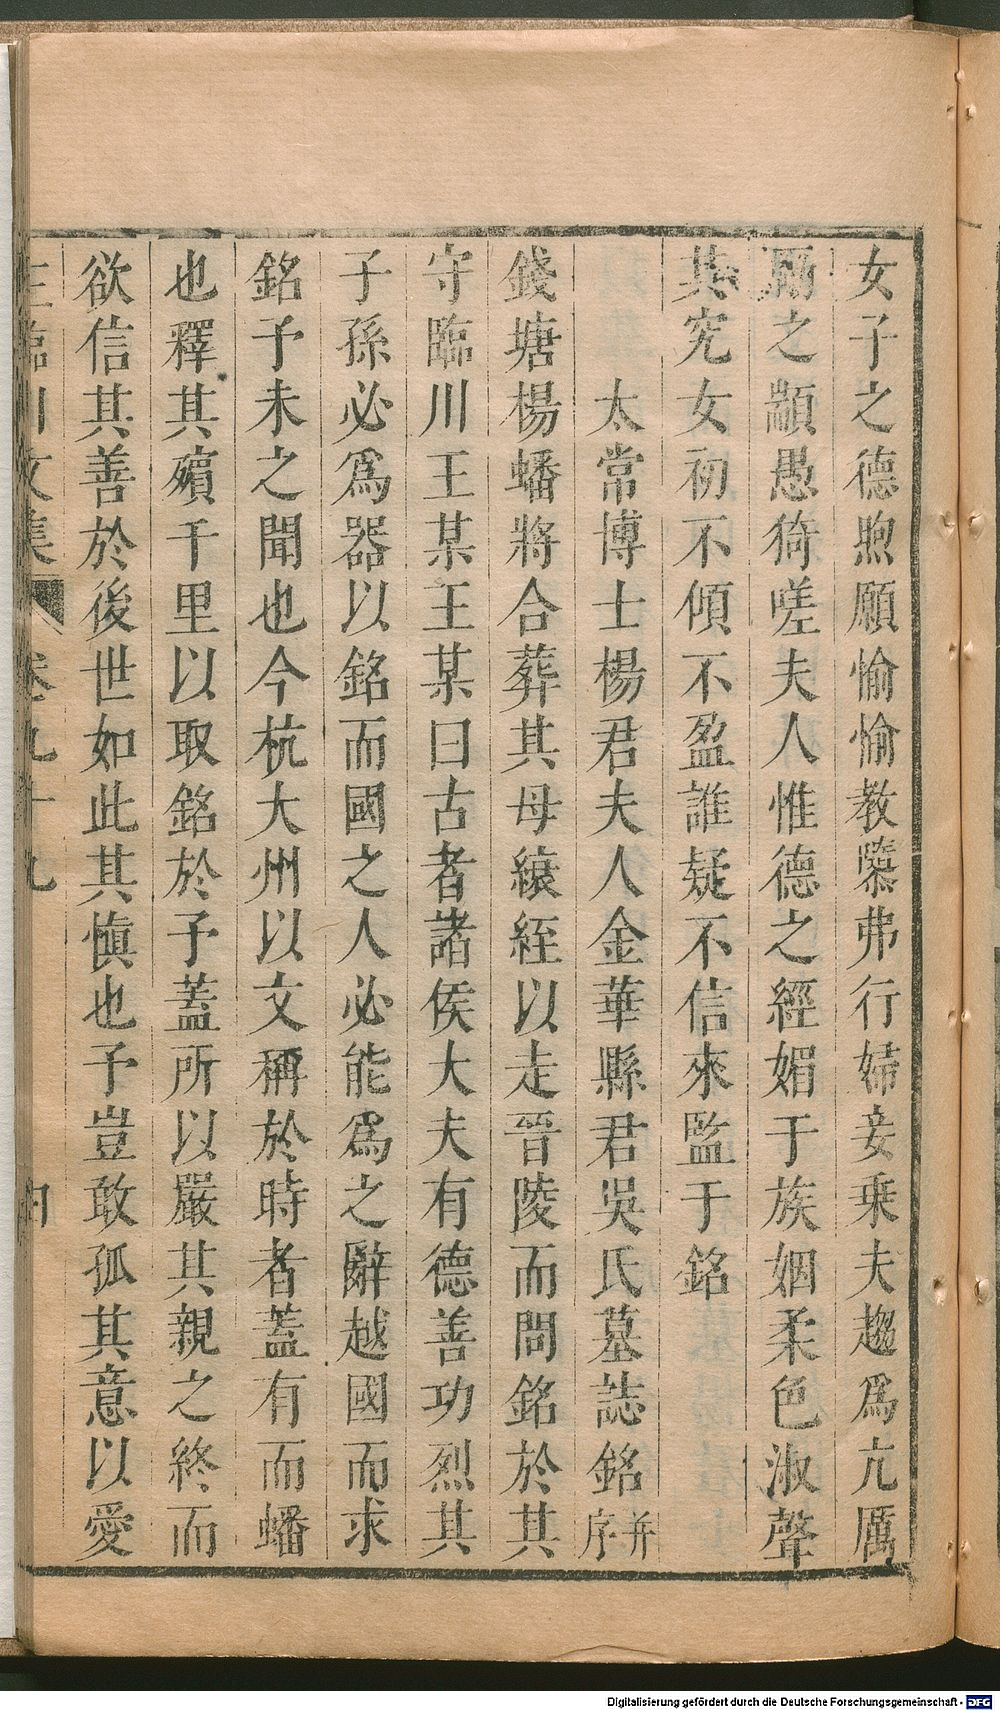 女子之德煦願愉愉教隳弗行婦妾乗夫趨爲亢厲
勵之顓愚猗嗟夫人惟德之經媚于族姻柔色淑聲
其究女初不傾不盈誰疑不信來監于銘
太常博士楊君夫人金華縣君吳氏墓誌銘并序
錢塘楊蟠將合葬其母縗絰以走晉陵而問銘於其
守臨川王某王某曰古者諸侯大夫有德善功烈其
子孫必爲器以銘而國之人必能爲之辭越國而求
銘予未之聞也今杭大州以文稱於時者蓋有而蟠
也釋其殯千里以取銘於予蓋所以嚴其親之終而
欲信其善於後世如此其慎也予豈敢孤其意以愛
王臨川文集 卷九十九 四
Digitalisierung gefördert durch die Deutsche Forschungsgemeinschaft - DFG